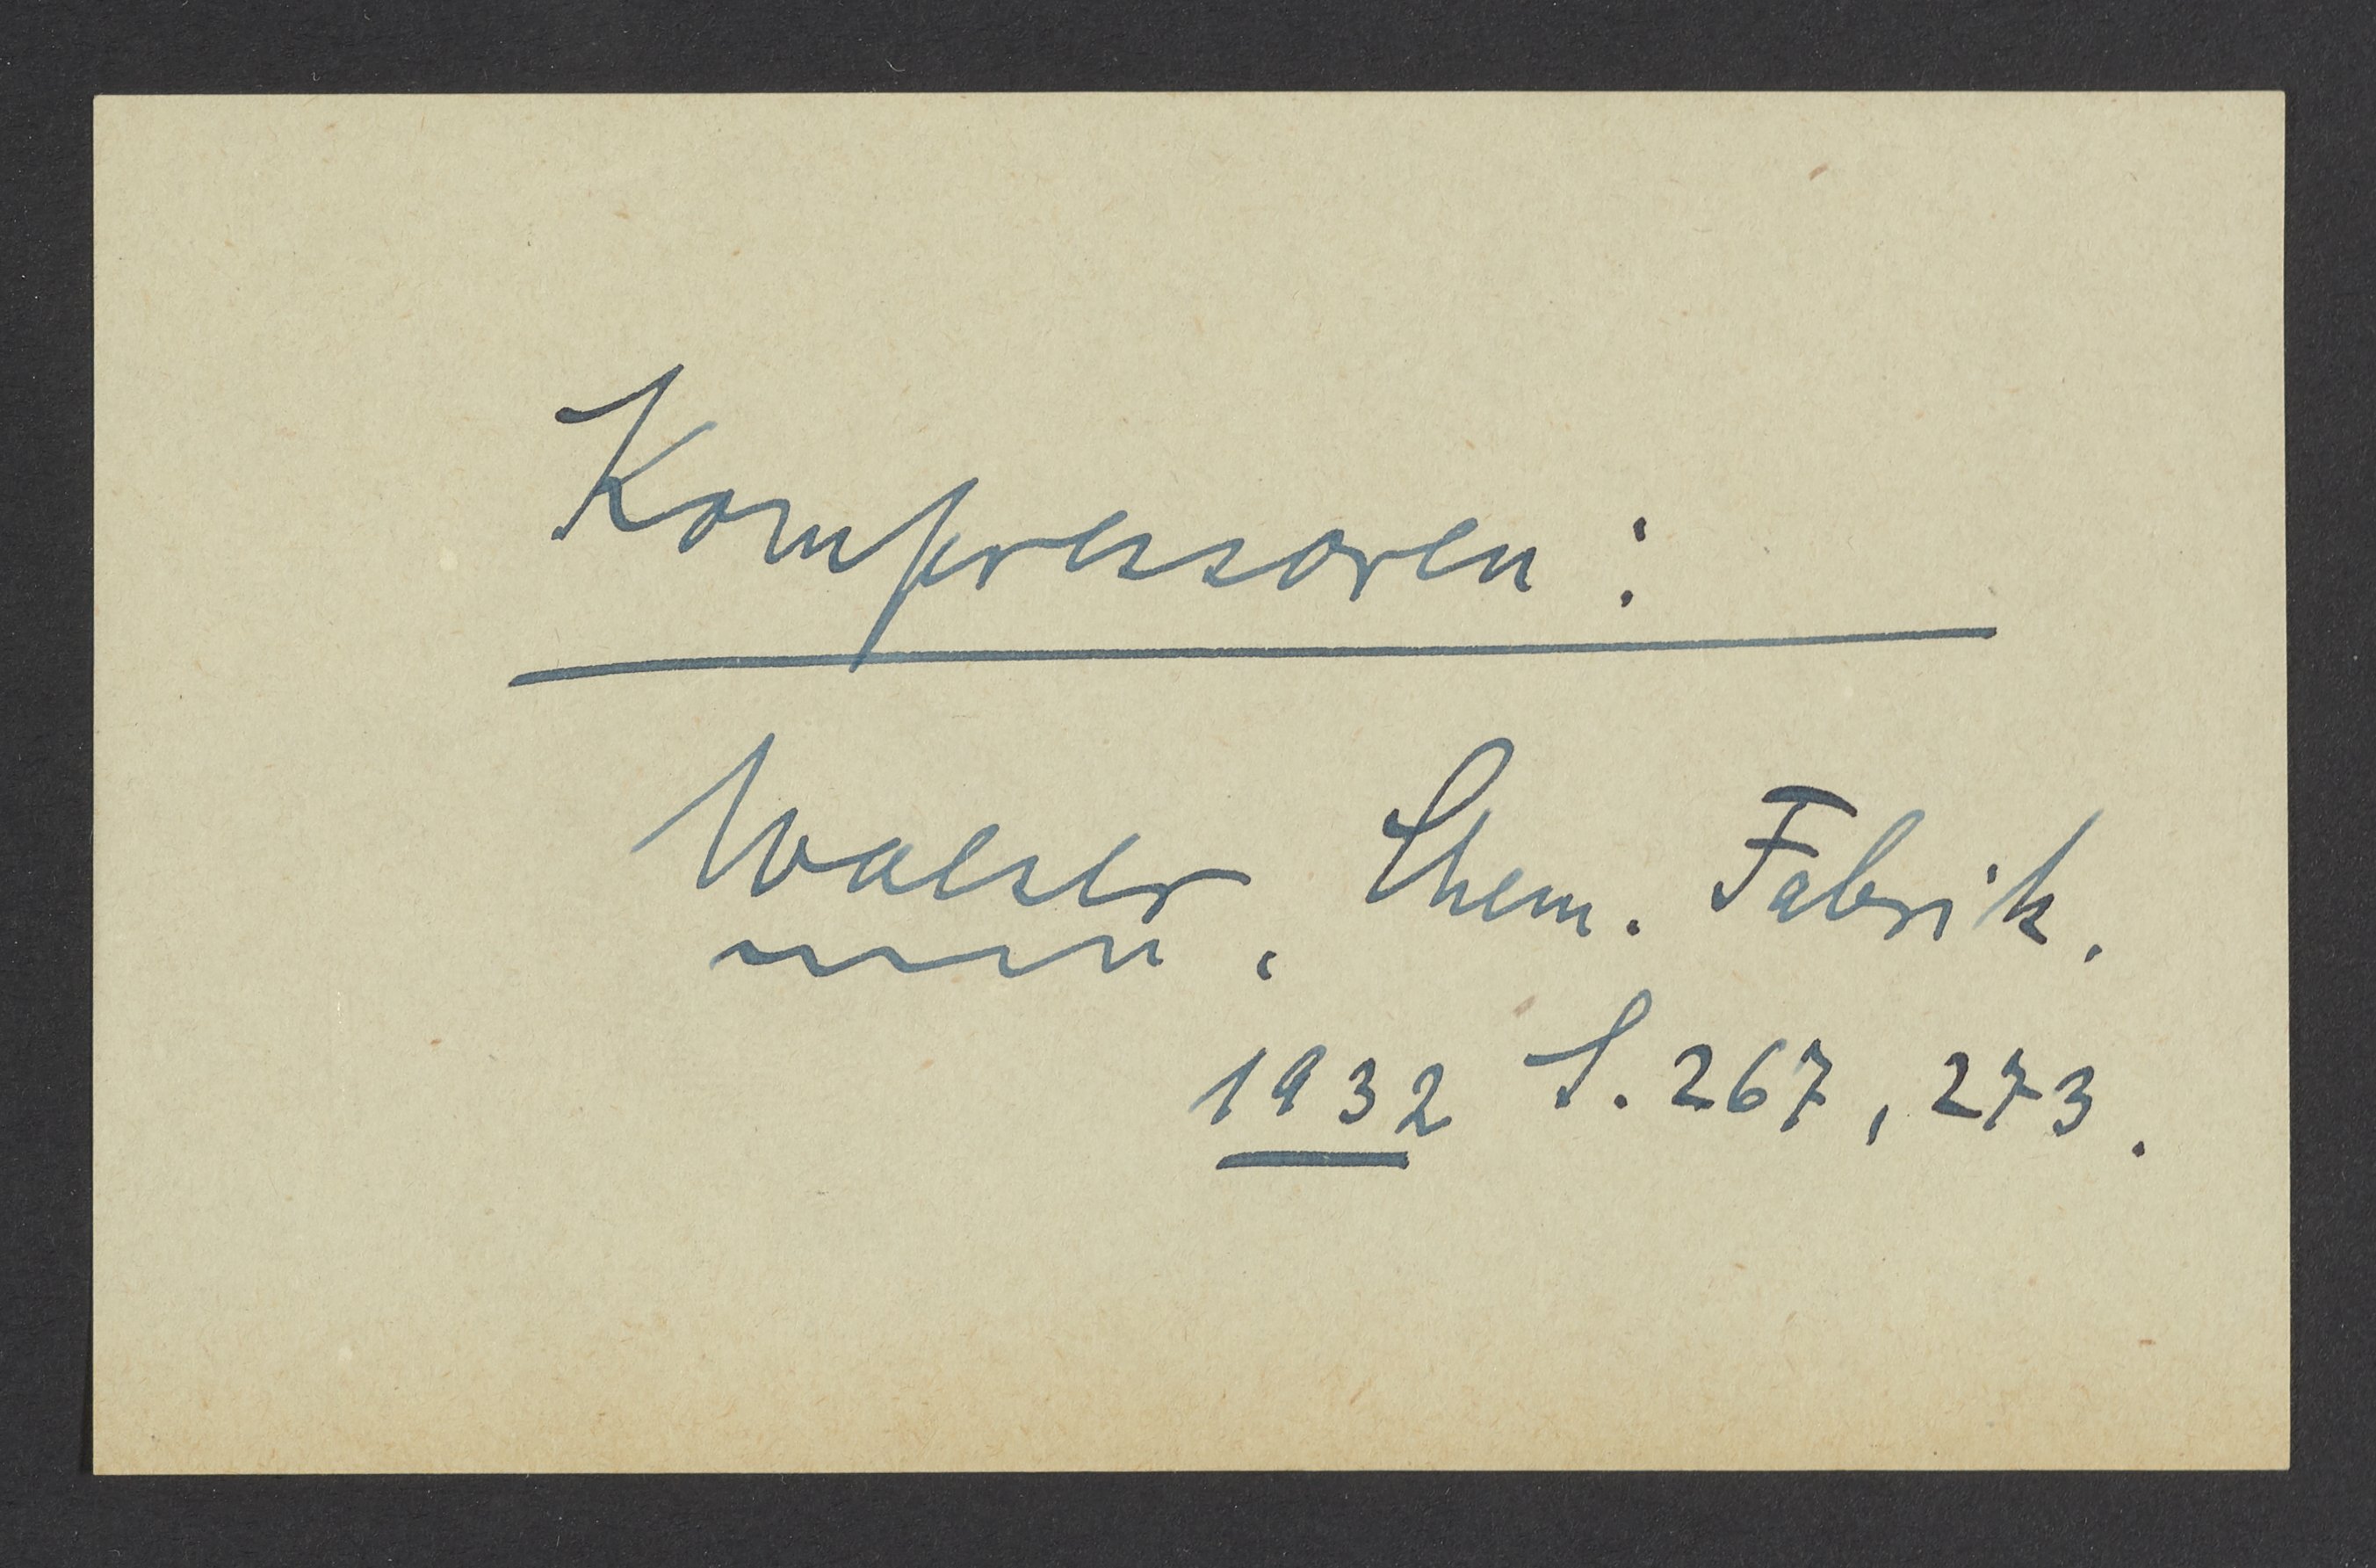 Kompressoren :
Waeser. Chem. Fabrik.
1932 S. 267, 273.